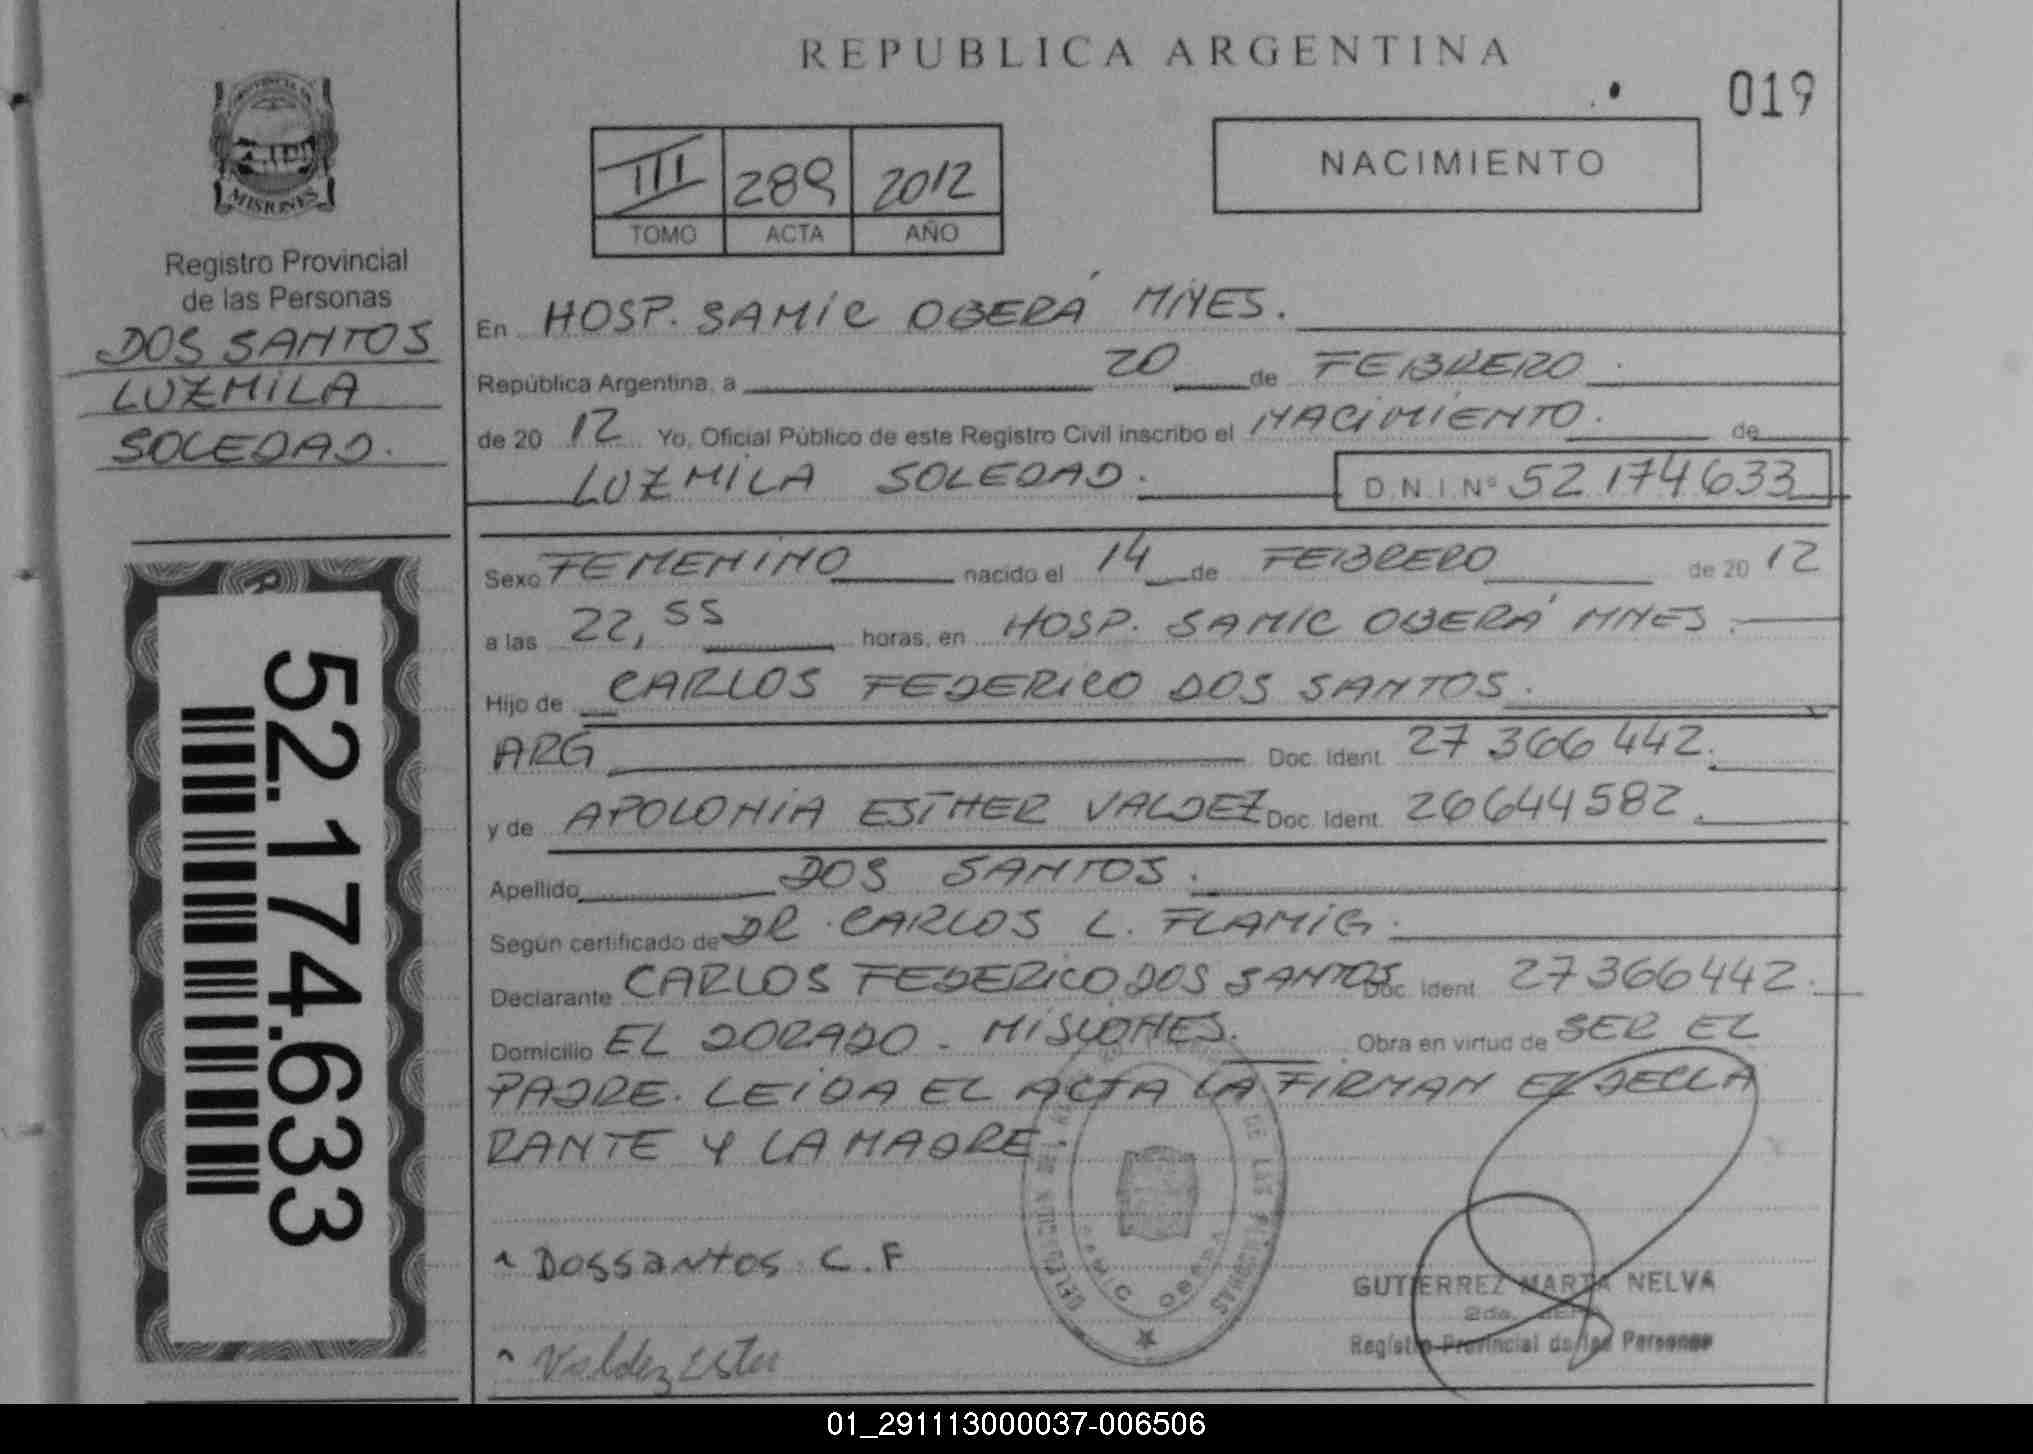 REPUBLICA ARGENTINA
019
NACIMIENTO
III 289 2012
TOMO ACTA AÑO
MISIONES
Registro Provincial
de las Personas
DOS SANTOS
LUZMILA
SOLEDAD.
52.174.633
En HOSP. SAMIC OBERÁ MNES.
República Argentina, a 20 de FEBRERO
de 20 12 Yo, Oficial Público de este Registro Civil inscribo el NACIMIENTO. de
LUZMILA SOLEDAD. D.N.I.Nº 52174633
Sexo FEMENINO nacido el 14 de FEBRERO de 20 12
a las 22,55 horas, en HOSP. SAMIC OBERÁ MNES.
Hijo de CARLOS FEDERICO DOS SANTOS.
ARG Doc. Ident. 27 366 442.
y de APOLONIA ESTHER VALDEZ Doc. Ident. 26644582.
Apellido DOS SANTOS.
Según certificado de DR. CARLOS L. FLAMIG.
Declarante CARLOS FEDERICO DOS SANTOS Doc. Ident. 27366442.
Domicilio EL DORADO - MISIONES. Obra en virtud de SER EL
PADRE. LEIDA EL ACTA LA FIRMAN EL DECLA
RANTE Y LA MADRE.
DOSSANTOS C.F
Valdez Ester
DE LAS PERSONAS
SAMIC OBERA
GUTIERREZ MARTA NELVA
2da.
Registro Provincial de las Personas
01_291113000037-006506